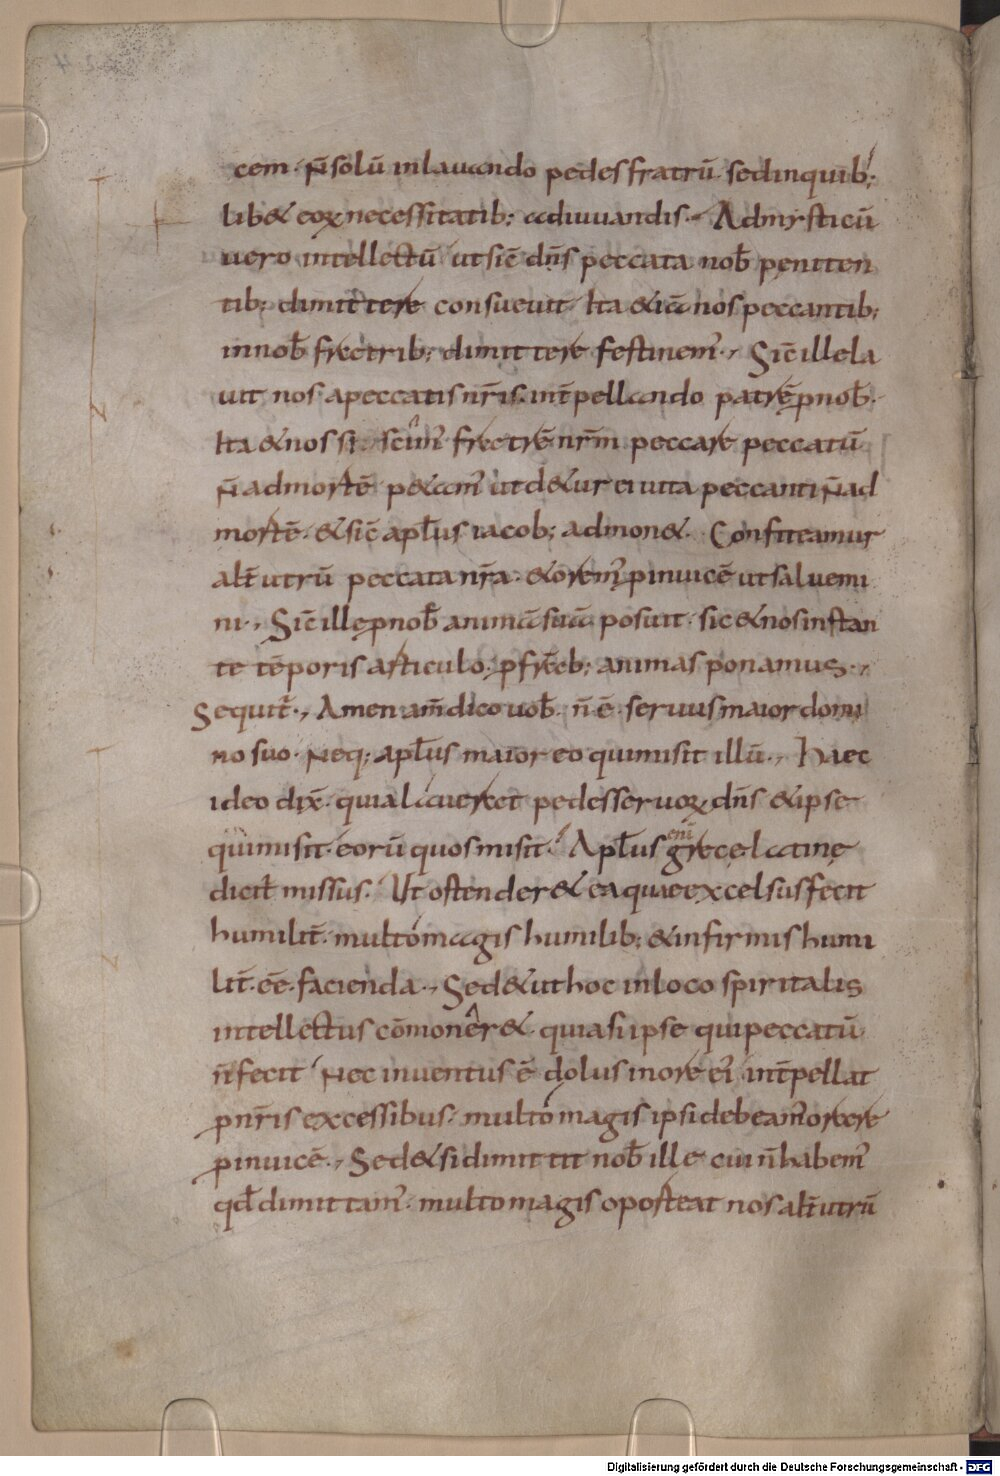 cem · N̄ solū in lauando pedes fratrū · sed in quib;
lib& eoꝝ necessitatib; adiuuandis · Ad mysticū
uero intellectū ut sic̄ dn̄s peccata nob̄ peniten
tib; dimittere consueuit · Ita & iā nos peccantib;
in nob̄ fratrib; dimittere festinem' · Sic̄ ille la
uit nos a peccatis nr̄is · int̄pellando patrē p nob̄ ·
Ita & nos si scim' fratrē nr̄m peccare peccatū
n̄ ad mortē p&am' ut d&ur ei uita peccanti n̄ ad
mortē · & sic̄ apl̄us iacob; admon& · Confiteamur
alt̄utrū peccata nr̄a · & orem' p inuicē ut saluemi
ni · Sic̄ ille p nob̄ animā suā posuit · sic & nos instan
te tēporis articulo · p fr̄ab; animas ponamus ·
Sequit̄ · Amen am̄ dico uob̄ · n̄ ē seruus maior domi
no suo · Neq; apl̄us maior eo qui misit illū · Haec
ideo dix̄ · quia lauaret pedes seruoꝝ dn̄s & ipse
qui misit · eorū quos misit · Apl̄us enī grece latine
dicit̄ missus · Ut ostender& ea quae excelsus fecit
humilit̄ · multo magis humilib; & infirmis humi
lit̄ · eē · facienda · Sed & ut hoc in loco spiritalis
intellectus cōmoner& · quia si ipse qui peccatū
n̄ fecit Nec inuentus ē dolus in ore ei' int̄pellat
p nr̄is excessibus · multo magis ipsi debeam' orare
p inuicē · Sed & si dimittit nob̄ ille cui n̄ habem'
qd̄ dimittam' · multo magis oporteat nos alt̄utrū
Digitalisierung gefördert durch die Deutsche Forschungsgemeinschaft - DFG